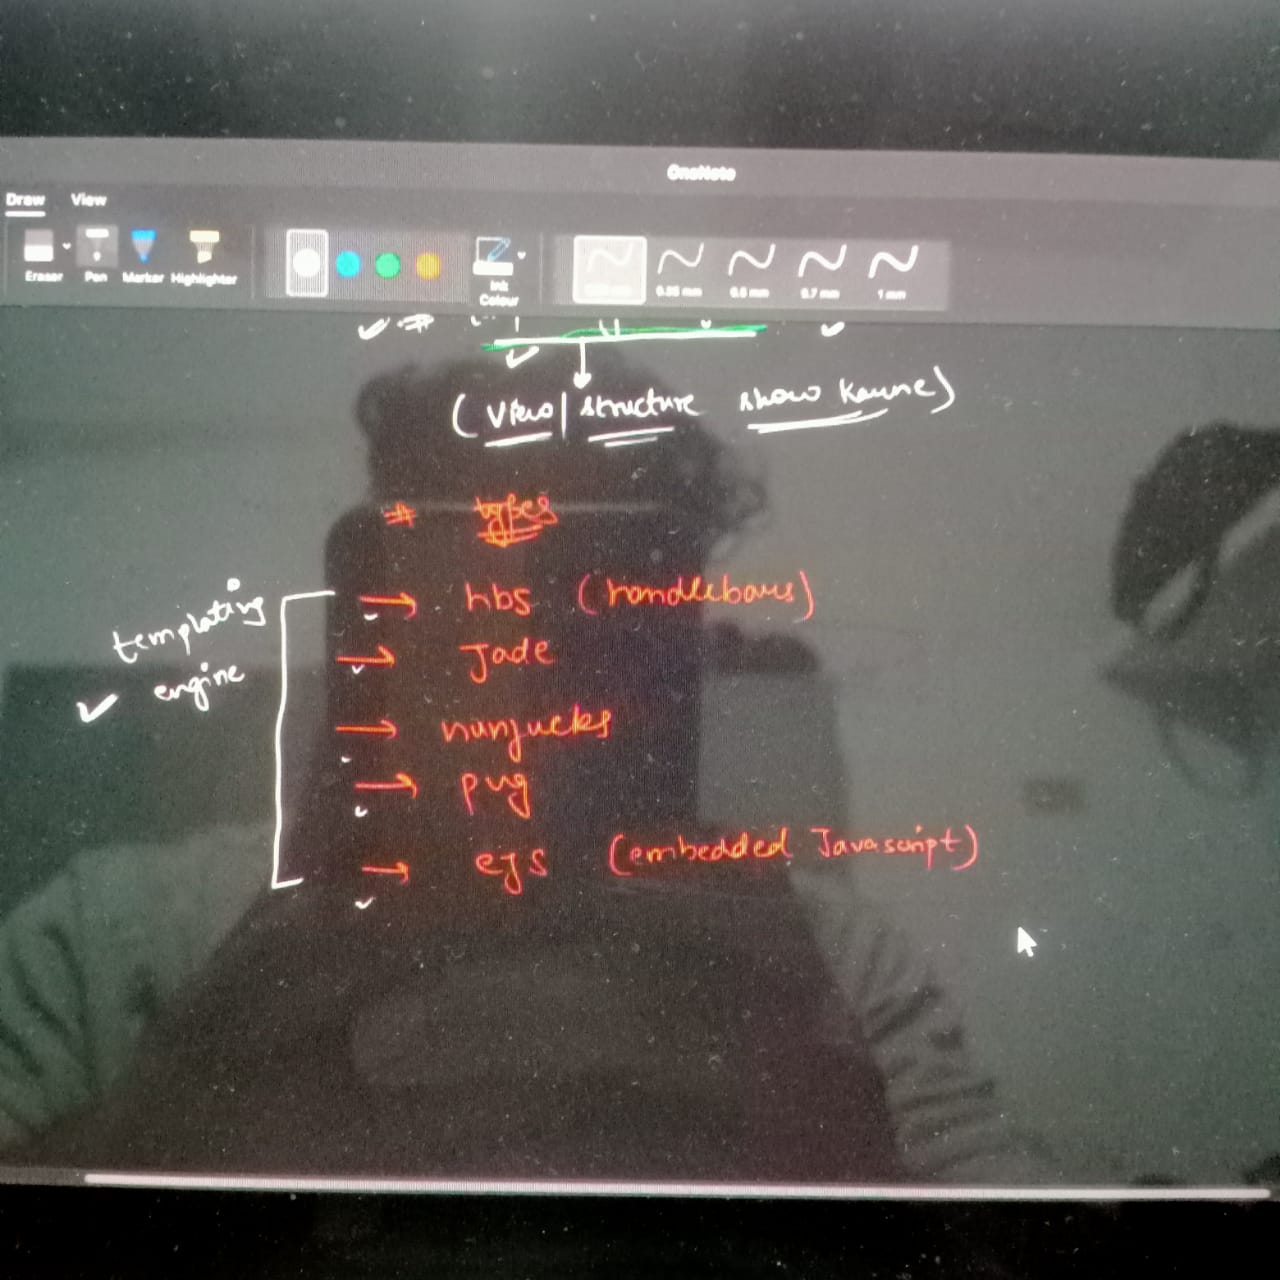 OneNote
Draw View
Eraser Pen Marker Highlighter Ink Colour 0.35 mm 0.5 mm 0.7 mm 1 mm
(View | structure show karne)
# types
templating engine
→ hbs (handlebars)
→ Jade
→ nunjucks
→ pug
→ ejs (embedded Javascript)